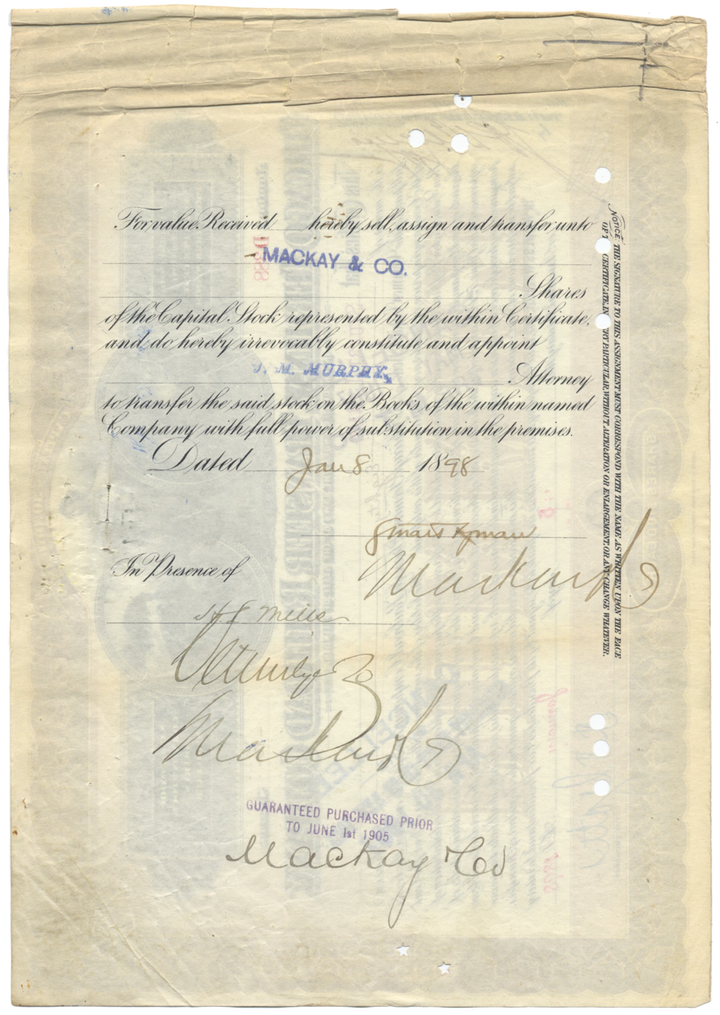 For value Received hereby sell, assign and transfer unto
MACKAY & CO.
Shares
of the Capital Stock represented by the within Certificate,
and do hereby irrevocably constitute and appoint
J. M. MURPHY,
Attorney
to transfer the said stock on the Books of the within named
Company with full power of substitution in the premises.
Dated Jan 8 1898
In Presence of
Mackay & Co
Mackay & Co
GUARANTEED PURCHASED PRIOR
TO JUNE 1st 1905
Mackay & Co
NOTICE THE SIGNATURE TO THIS ASSIGNMENT MUST CORRESPOND WITH THE NAME AS WRITTEN UPON THE FACE
CERTIFICATE, IN PARTICULAR, WITHOUT ALTERATION OR ENLARGEMENT, OR ANY CHANGE WHATEVER.